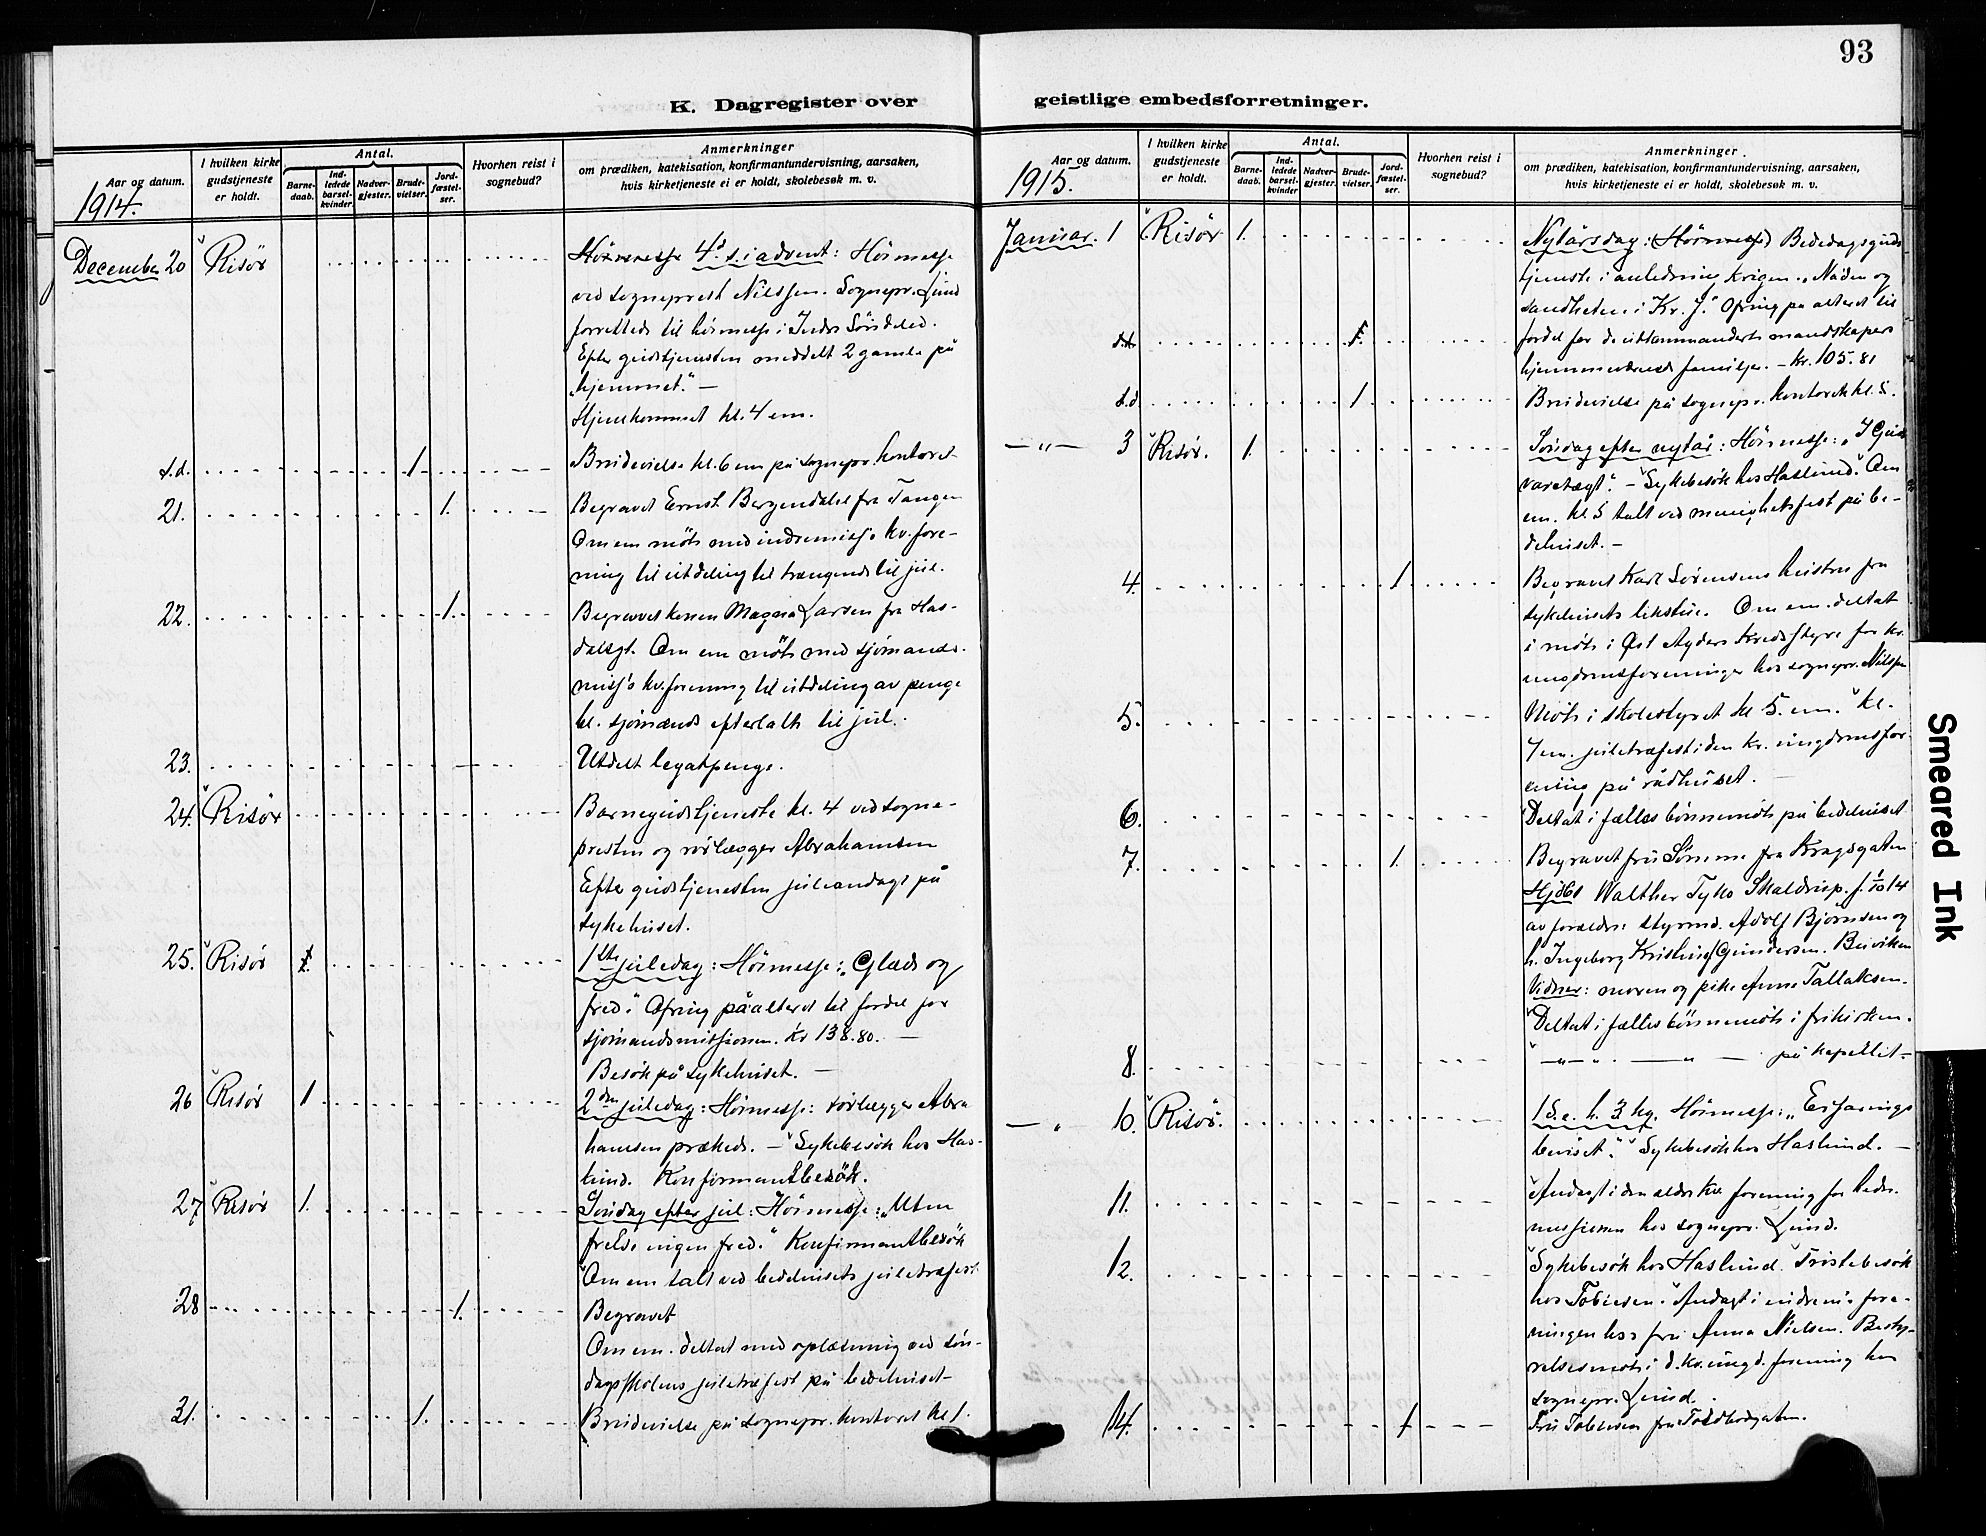 93
K. Dagregister over geistlige embedsforretninger.
Aar og datum.
1914.
I hvilken kirke gudstjeneste er holdt.
Antal.
Barne-daab.
Ind-ledede barsel-kvinder.
Nadver-gjester.
Brude-vielser.
Jord-fæstel-ser.
Hvorhen reist i sognebud?
Anmerkninger
om prædiken, katekisation, konfirmantundervisning, aarsaken,
hvis kirketjeneste ei er holdt, skolebesøk m. v.
December 20 Risör Hörmesse 4de s. i advent: Hörmesse
ved sogneprest Nilssen. Sognepr. Lund
forrettede til hörmesse i Indre Söndeled.
Efter gudstjenesten meddelt 2 gamle på
"hjemmet." —
Hjemkommet kl. 4 em.
s.d. 1. Brudevielse kl. 6 em på sognepr. kontoret
21. 1. Begravet Ernst Bergendahl fra Tangen
Om em möte med indremisj's kv. fore-
ning til utdeling til trængende til jul.
22. 1. Begravet konen Larsen fra Has-
dalsgt. Om em möte med sjömands-
misj's kv. forening til utdeling av penge
til sjömænds efterlatte til jul.
23. Utdelt legatpenge.
24. Risör Barnegudstjeneste kl. 4 ved sogne-
presten og rörlægger Abrahamsen
Efter gudstjenesten juleandagt på
sykehuset.
25. Risör 1ste juledag: Hörmesse: "Glæde og
fred." Ofring på alteret til fordel for
sjömandsmissionen. Kr 138.80. —
Besök på sykehuset. —
26 Risör 1 2den juledag: Hörmesse: rörlægger Abra
hamsen prækede. — Sykebesök hos Has-
lund. Konfirmantbesök.
27 Risör 1. Söndag efter jul: Hörmesse: "Uten
frelse ingen fred." Konfirmantbesök
Om em talt ved bedehusets juletræfest
28 1. Begravet
Om em. deltat med oplæsning ved sön-
dagsskolens juletræfest på bedehuset—
31. 1. Brudevielse på sognepr. kontoret kl 1.
Aar og datum.
1915.
I hvilken kirke gudstjeneste er holdt.
Antal.
Barne-daab.
Ind-ledede barsel-kvinder
Nadver-gjester.
Brude-vielser.
Jord-fæstel-ser.
Hvorhen reist i sognebud?
Anmerkninger
om prædiken, katekisation, konfirmantundervisning, aarsaken,
hvis kirketjeneste ei er holdt, skolebesøk m. v.
Januar. 1 Risör 1. Nytårsdag: (Hörmesse) Bededagsguds
tjeneste i anledning krigen. "Nåden og
sandheden i Kr. J." Ofring på alteret til
fordel for de utkommanderte mandskapers
hjemmeværende familjer. — Kr. 105.81
s.d. 1 Brudevielse på sognepr. kontoret kl. 5.
—"— 3 Risör. 1. Söndag efter nytår: Hörmesse: "I Guds
varetægt." — Sykebesök hos Haslund. Om
em. kl. 5 talt ved menighetsfest på be-
dehuset. —
4. 1 Begravet Karl Sörensens hustru fra
sykehusets likstue. Om em. deltat
i möte i Øst Agders Kredsstyre for kr.
ungdomsforeninger hos sognepr. Nilssen
5. Möte i skolestyret kl 5. em. kl.
7 em. juletræfest i den kr. ungdomsfor
ening på rådhuset. —
6. Deltat i fælles bönnemöte på bedehuset
7. 1. Begravet fru Sömme fra Kragsgaten
Hjdbt Walther Tyko f. 1/10 14
av forældre: styrmd. Adolf Björnsen og
h. Ingeborg Kristine Gundersen. Buviken
Vidner: moren og pike Anne Tallaksen.
Deltat i fælles bönnemöte i frikirken.
8. —"— " — " — på kapellet—
—"— 10. Risör. 1 s. e. h. 3 kg. Hörmesse: "Erfarings
beviset." Sykebesök hos Haslund. —
11. Andagt i den ældre kv. forening for hedn.
missionen hos sognepr. Lund.
12. Sykebesök hos Haslund. Tröstebesök
hos Tobiesen. Andagt i indrem's fore-
ningen hos fru Anna Nielsen. Besty-
relsesmöte i d. kr. ungd. forening hos
sognepr. Lund.
14. 1 Fru Tobiesen fra Toldbodgaten.
Smeared Ink